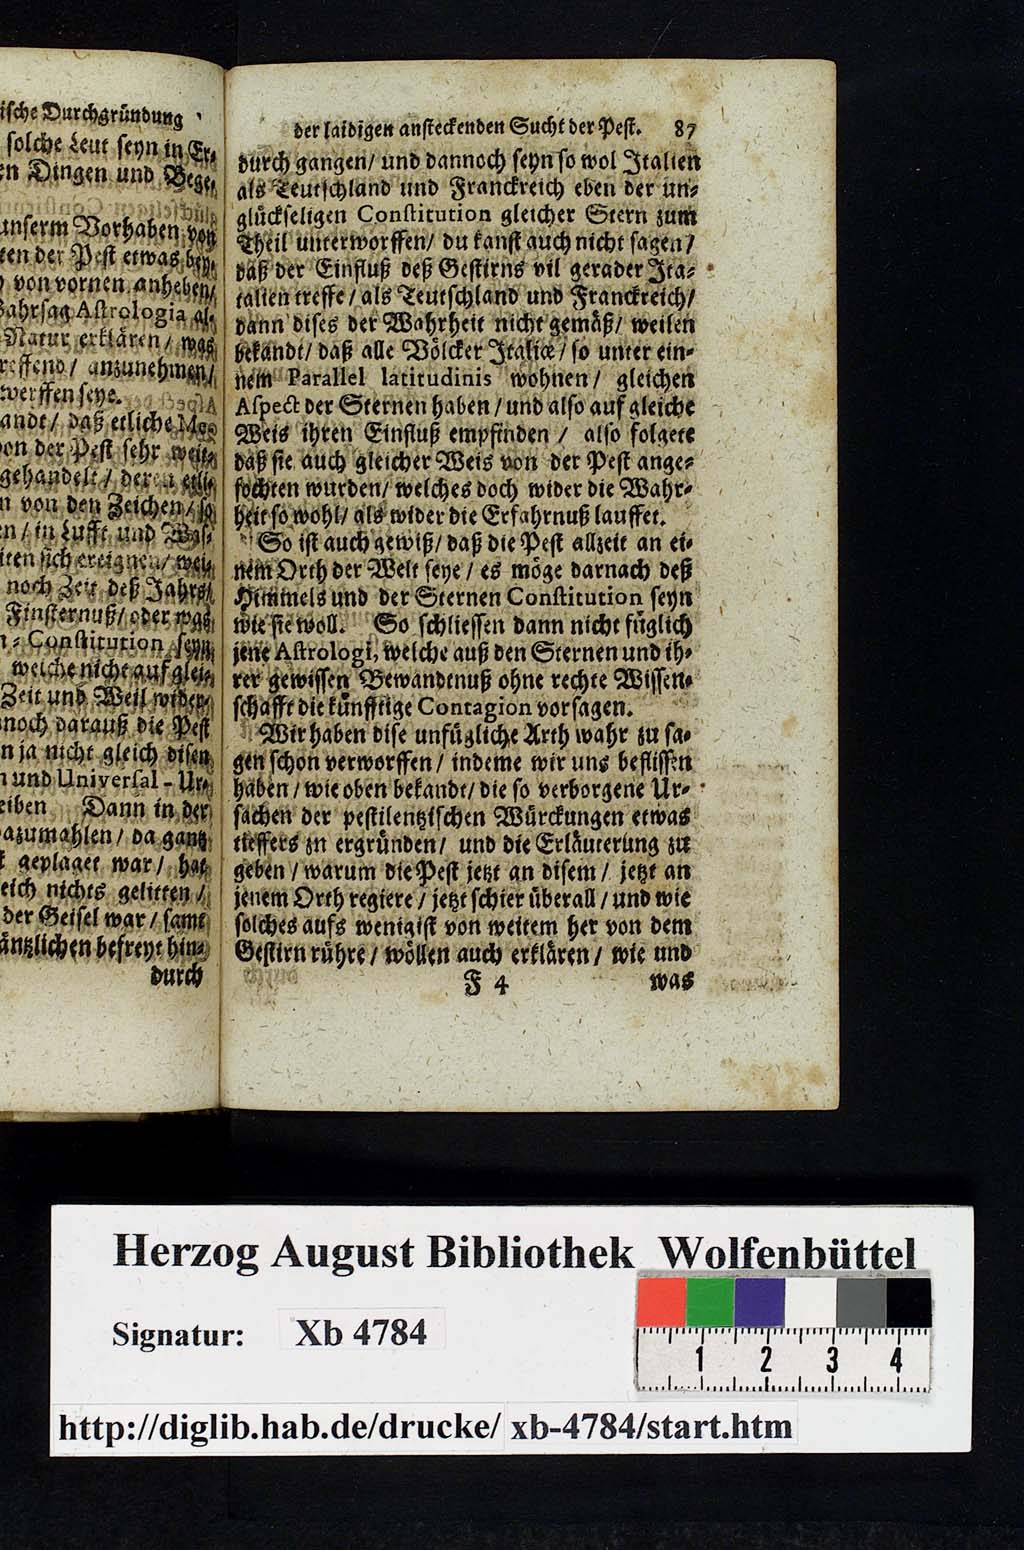 ische Durchgründung
solche Leut seyn in Er-
en Dingen und Bege-
unserm Vorhaben von
ten der Pest etwas bey-
von vornen anheben/
Wahrsag Astrologia al-
Natur erklären/ was
reffend/ anzunehmen/
werffen seye.
andt/ daß etliche Me-
von der Pest sehr weit-
gehandelt/ deren etli-
n von den Zeichen/ so
en/ in Lufft und Was-
iten sich ereignen/ wel-
noch Zeit deß Jahrs/
Finsternuß/ oder was
n-Constitution seyn
welche nicht auf glei-
Zeit und Weil wider-
noch darauß die Pest
n ja nicht gleich disen
n und Universal-Ur-
eiben Dann in der
dazumahlen/ da gantz
geplaget war/ hat
eich nichts gelitten/
der Geisel war/ samt
äntzlichen befreyt hin-
durch
der laidigen ansteckenden Sucht der Pest. 87
durch gangen/ und dannoch seyn so wol Italien
als Teutschland und Franckreich eben der un-
glückseligen Constitution gleicher Stern zum
Theil unterworffen/ du kanst auch nicht sagen/
daß der Einfluß deß Gestirns vil gerader Ita-
talien treffe/ als Teutschland und Franckreich/
dann dises der Wahrheit nicht gemäß/ weilen
bekandt/ daß alle Völcker Italiæ/ so unter ein-
nem Parallel latitudinis wohnen/ gleichen
Aspect der Sternen haben/ und also auf gleiche
Weis ihren Einfluß empfinden/ also folgete
daß sie auch gleicher Weis von der Pest ange-
fochten wurden/ welches doch wider die Wahr-
heit so wohl/ als wider die Erfahrnuß lauffet.
So ist auch gewiß/ daß die Pest allzeit an ei-
nem Orth der Welt seye/ es möge darnach deß
Himmels und der Sternen Constitution seyn
wie sie woll. So schliessen dann nicht füglich
jene Astrologi, welche auß den Sternen und ih-
rer gewissen Bewandtnuß ohne rechte Wissen-
schafft die künfftige Contagion vorsagen.
Wir haben dise unfügliche Arth wahr zu sa-
gen schon verworffen/ indeme wir uns beflissen
haben/ wie oben bekandt/ die so verborgene Ur-
sachen der pestilentzischen Würckungen etwas
tieffers zu ergründen/ und die Erläuterung zu
geben/ warum die Pest jetzt an disem/ jetzt an
jenem Orth regiere/ jetzt schier überall/ und wie
solches aufs wenigist von weitem her von dem
Gestirn rühre/ wöllen auch erklären/ wie und
F 4 was
Herzog August Bibliothek Wolfenbüttel
Signatur: Xb 4784
1 2 3 4
http://diglib.hab.de/drucke/ xb-4784/start.htm